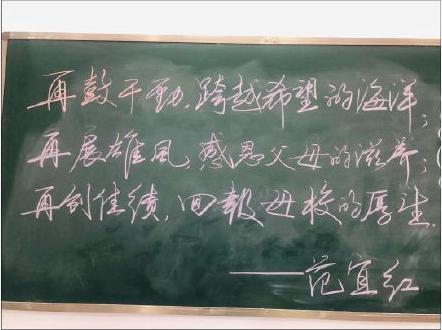 再鼓干劲,跨越希望的海洋;
再展雄风,感恩父母的滋养;
再创佳绩,回报母校的厚生.
——范宜红